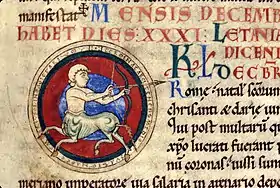 manifestat
MENSIS DECEMB
HABET DIES: XXXI: LETANIA
DICENT
KL DECBR
Rome natał scorum
chrisanti & darie uir
Qui post multarū
xpo lucrati fuerant
nū coronas iussi sunt
meriano imperatore uia salaria in arenario deo